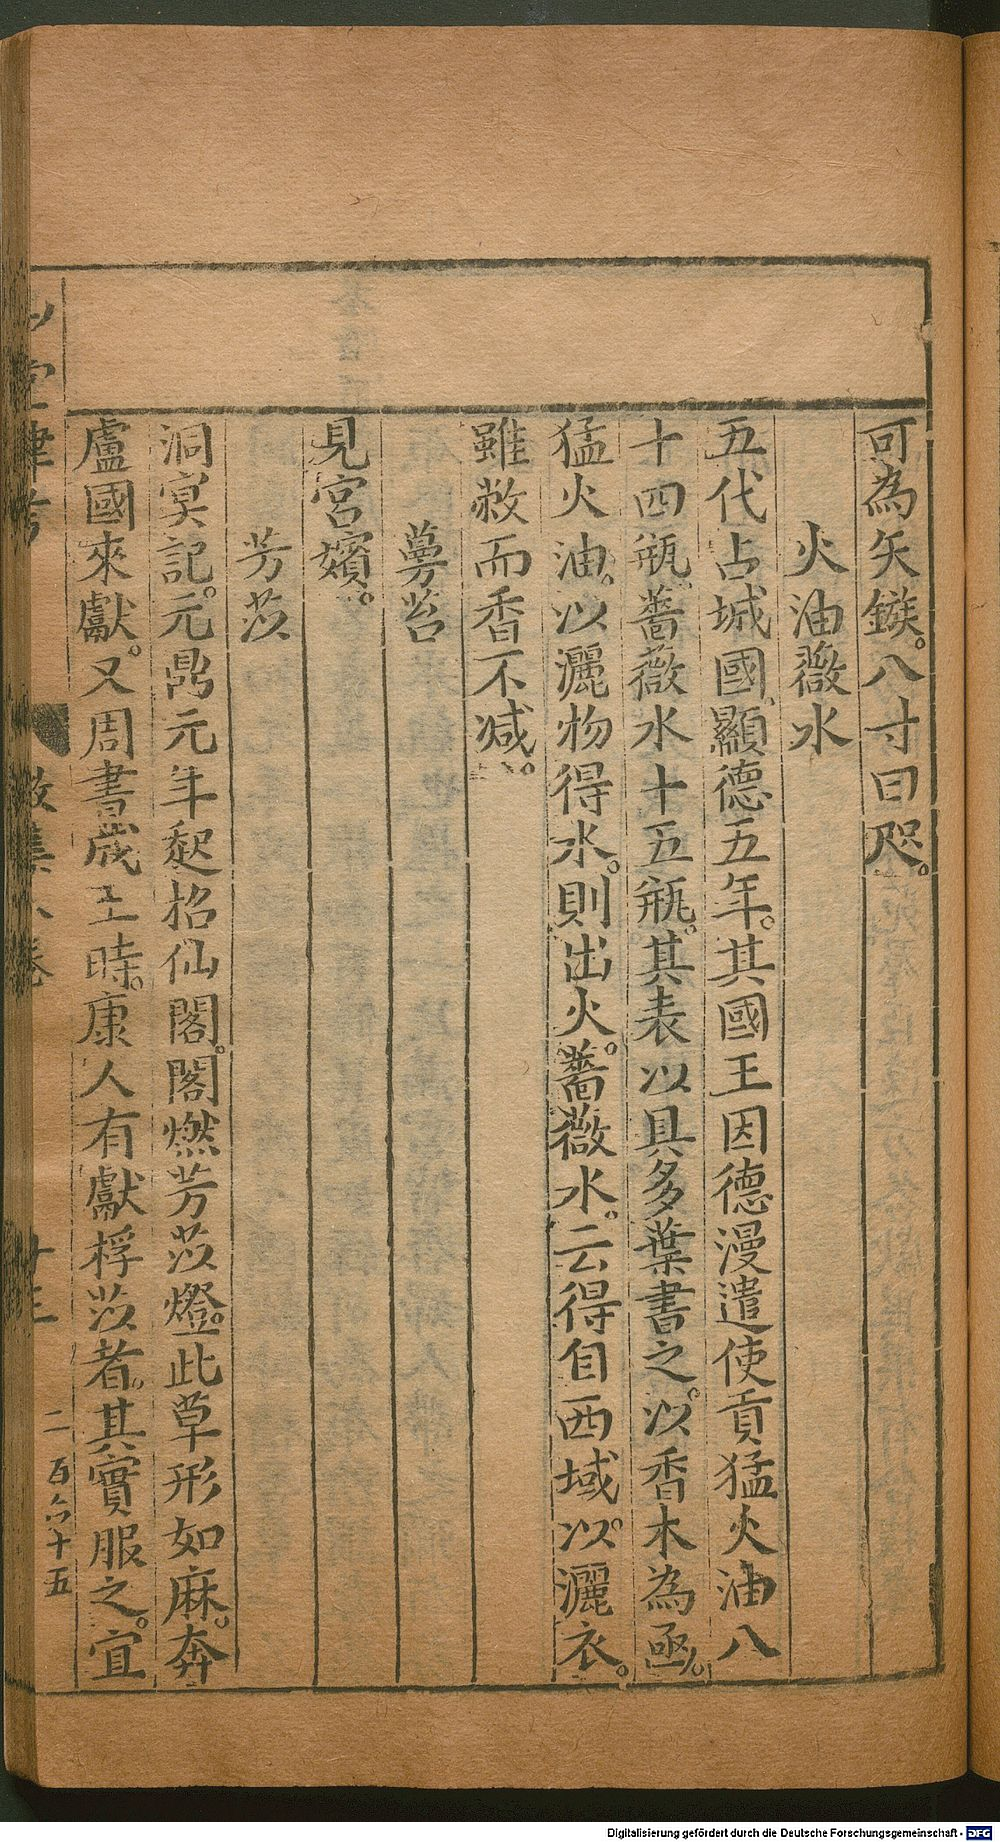 可為矢鏃。八寸曰咫。
火油薇水
五代占城國、顯德五年。其國王因德漫遣使貢猛火油八
十四瓶、薔薇水十五瓶。其表以具多葉書之。以香木為函。
猛火油。以灑物得水。則出火。薔薇水。云得自西域。以灑衣。
雖敝而香不減。
蔓苔
見宮嬪。
芳苡
洞冥記。元鼎元年起招仙閣。閣燃芳苡燈。此草形如麻。奔
盧國來獻。又周書。成王時。康人有獻桴苡者。其實服之。宜
山堂肆考
二百六十五
Digitalisierung gefördert durch die Deutsche Forschungsgemeinschaft - DFG